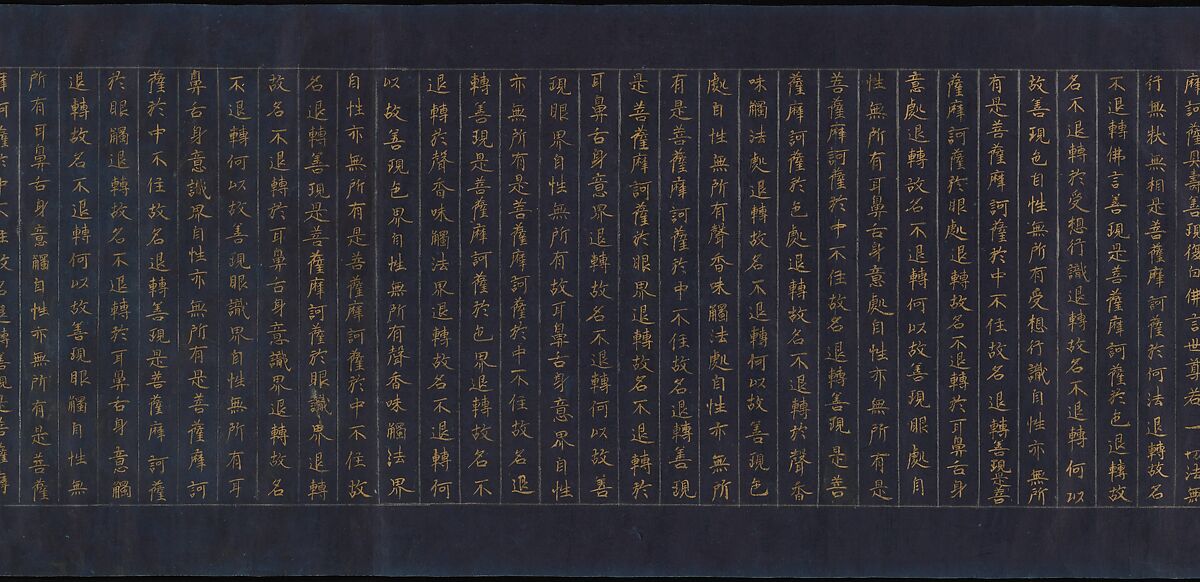 摩訶薩具壽善現復白佛言世尊若一切法無
行無狀無相是菩薩摩訶薩於何法退轉故名
不退轉佛言善現是菩薩摩訶薩於色退轉故
名不退轉於受想行識退轉故名不退轉何以
故善現色自性無所有受想行識自性亦無所
有是菩薩摩訶薩於中不住故名退轉善現是菩
薩摩訶薩於眼處退轉故名不退轉於耳鼻舌身
意處退轉故名不退轉何以故善現眼處自
性無所有耳鼻舌身意處自性亦無所有是
菩薩摩訶薩於中不住故名退轉善現是菩
薩摩訶薩於色處退轉故名不退轉於聲香
味觸法處退轉故名不退轉何以故善現色
處自性無所有聲香味觸法處自性亦無所
有是菩薩摩訶薩於中不住故名退轉善現
是菩薩摩訶薩於眼界退轉故名不退轉於
耳鼻舌身意界退轉故名不退轉何以故善
現眼界自性無所有故耳鼻舌身意界自性
亦無所有是菩薩摩訶薩於中不住故名退
轉善現是菩薩摩訶薩於色界退轉故名不
退轉於聲香味觸法界退轉故名不退轉何
以故善現色界自性無所有聲香味觸法界
自性亦無所有是菩薩摩訶薩於中不住故
名退轉善現是菩薩摩訶薩於眼識界退轉
故名不退轉於耳鼻舌身意識界退轉故名
不退轉何以故善現眼識界自性無所有耳
鼻舌身意識界自性亦無所有是菩薩摩訶
薩於中不住故名退轉善現是菩薩摩訶薩
於眼觸退轉故名不退轉於耳鼻舌身意觸
退轉故名不退轉何以故善現眼觸自性無
所有耳鼻舌身意觸自性亦無所有是菩薩
摩訶薩於中不住故名退轉善現是菩薩摩